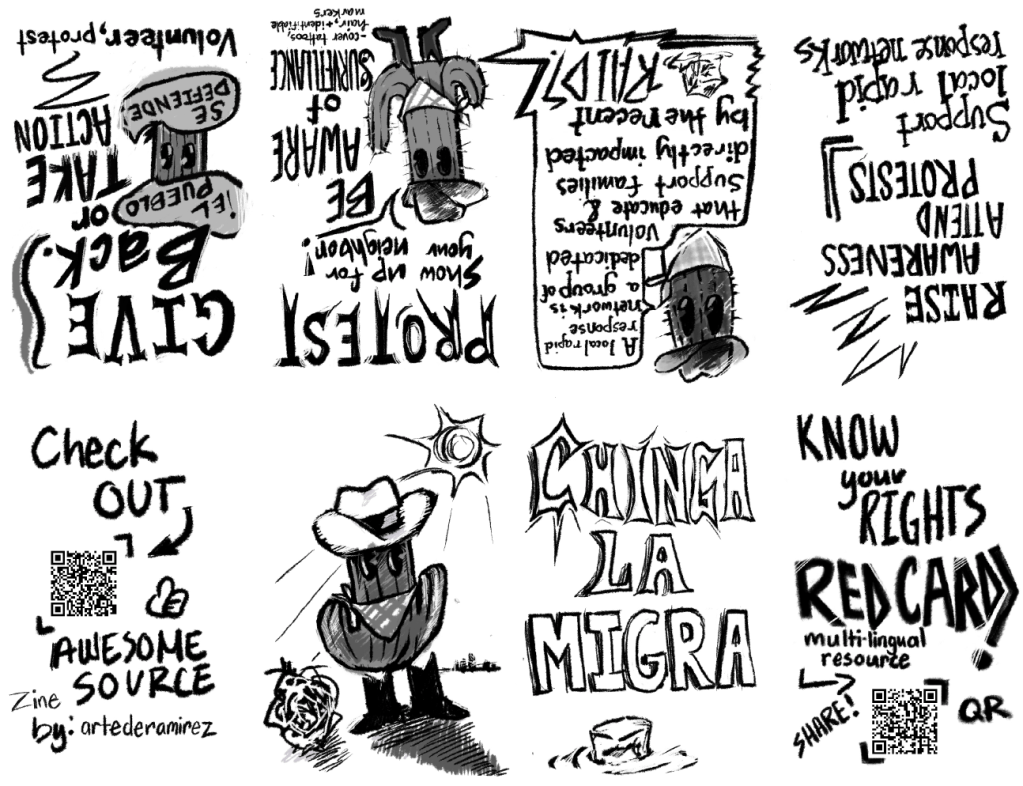 CHINGA
LA
MIGRA
KNOW
your
RIGHTS
RED CARD!
multi-lingual
resource
SHARE!
QR
RAISE
AWARENESS
ATTEND
PROTESTS
Support
local rapid
response networks
A local rapid
response
network is
a group of
dedicated
Volunteers
that educate &
Support families
directly impacted
by the recent
RAIDS!
PROTEST
Show up for
your neighbor!
BE
AWARE
of
SURVEILLANCE
-cover tattoos,
hair, + identifiable
markers
GIVE
Back.
or
¡EL
PUEBLO
SE
DEFIENDE!
TAKE
ACTION
Volunteer, protest
Check
OUT
AWESOME
SOURCE
Zine
by: artederamirez